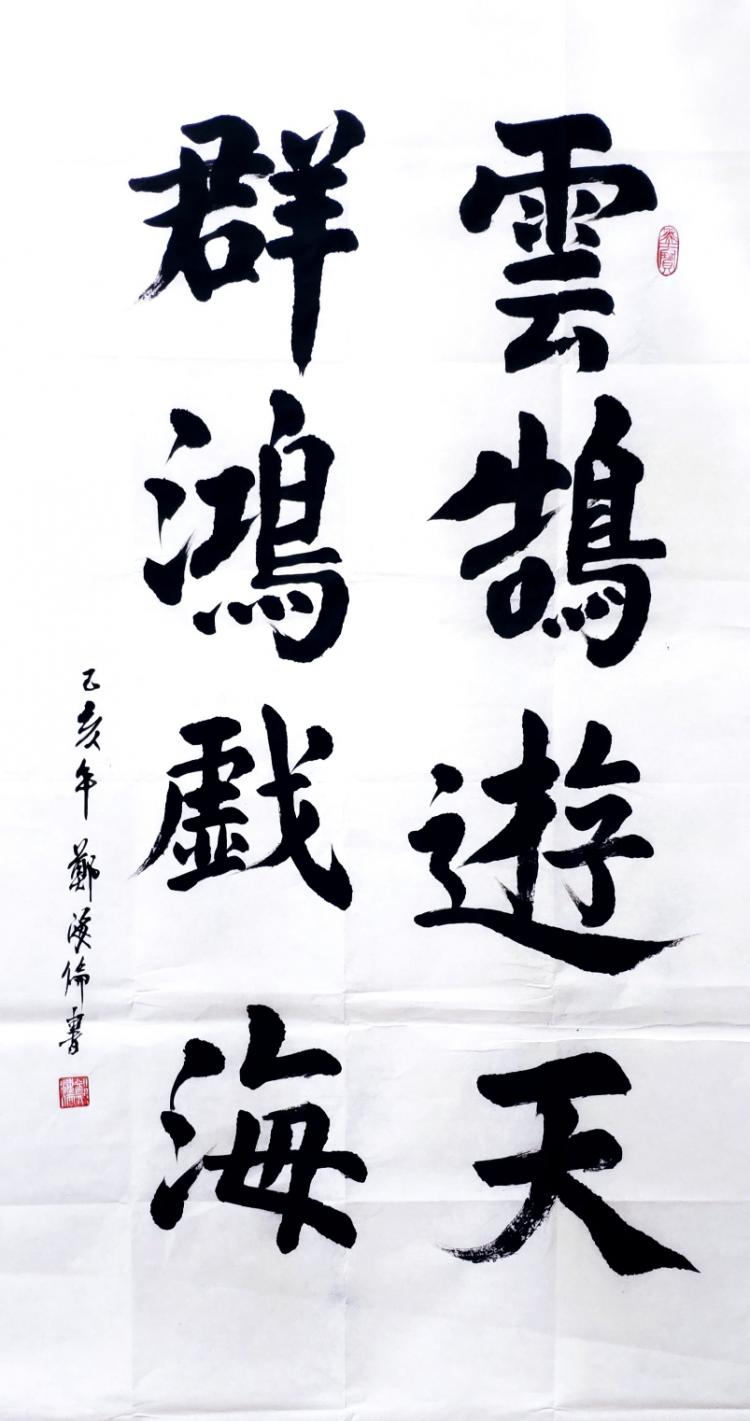 雲鵠遊天
群鴻戱海
己亥年鄭漢倫書